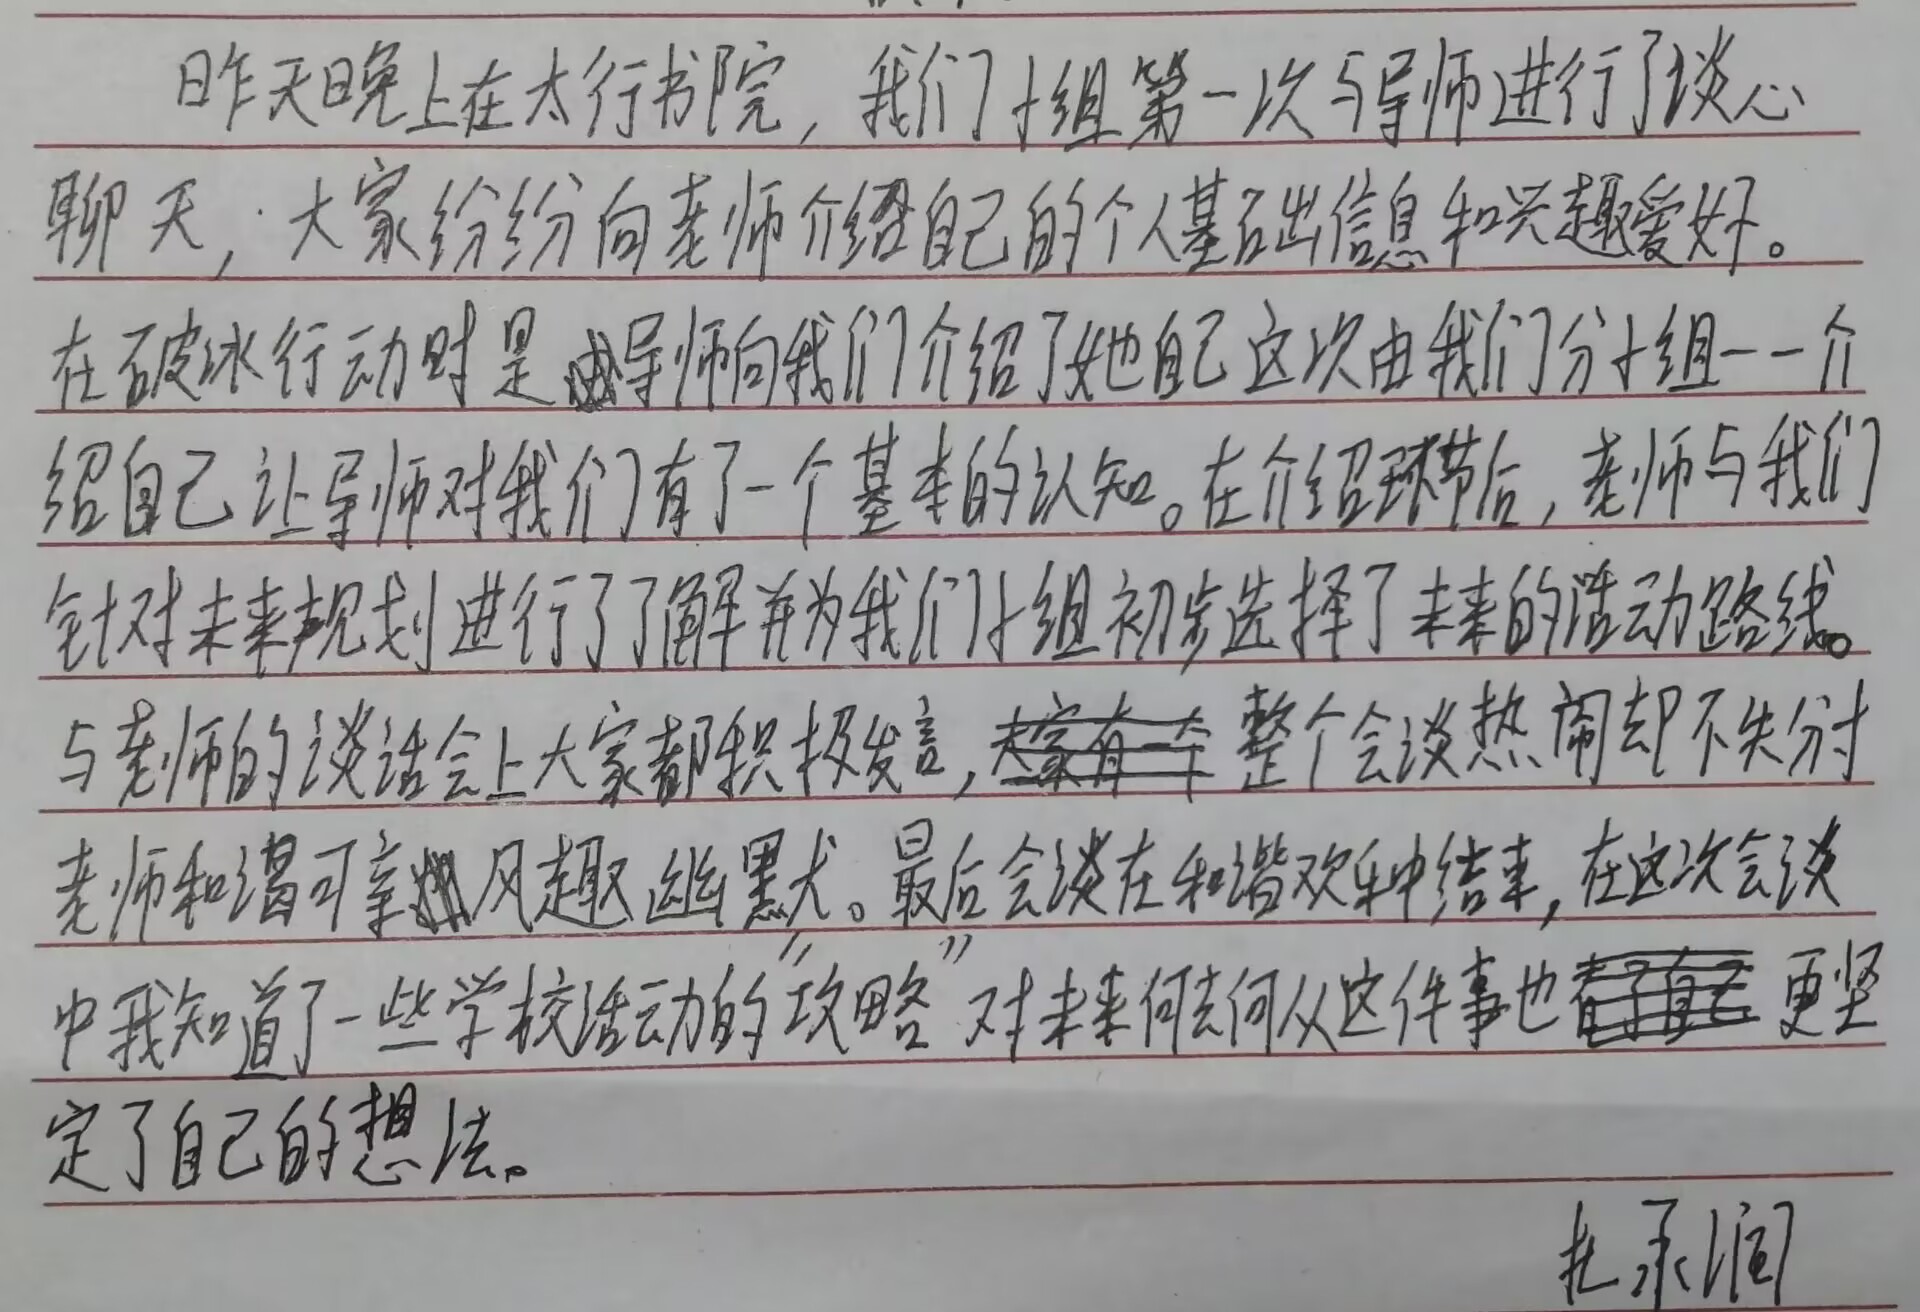 昨天晚上在太行书院，我们小组第一次与导师进行了谈心
聊天，大家纷纷向老师介绍自己的个人基础信息和兴趣爱好。
在破冰行动时是导师向我们介绍了她自己这次由我们分小组一一介
绍自己让导师对我们有了一个基本的认知。在介绍环节后，老师与我们
针对未来规划进行了了解并为我们小组初步选择了未来的活动路线。
与老师的谈话会上大家都积极发言，大家有一个整个会谈热闹却不失分寸
老师和谒可亲风趣幽默。最后会谈在和谐欢乐中结束，在这次会谈
中我知道了一些学校活动的“攻略”对未来何去何从这件事也有了自己更坚
定了自己的想法。
承润